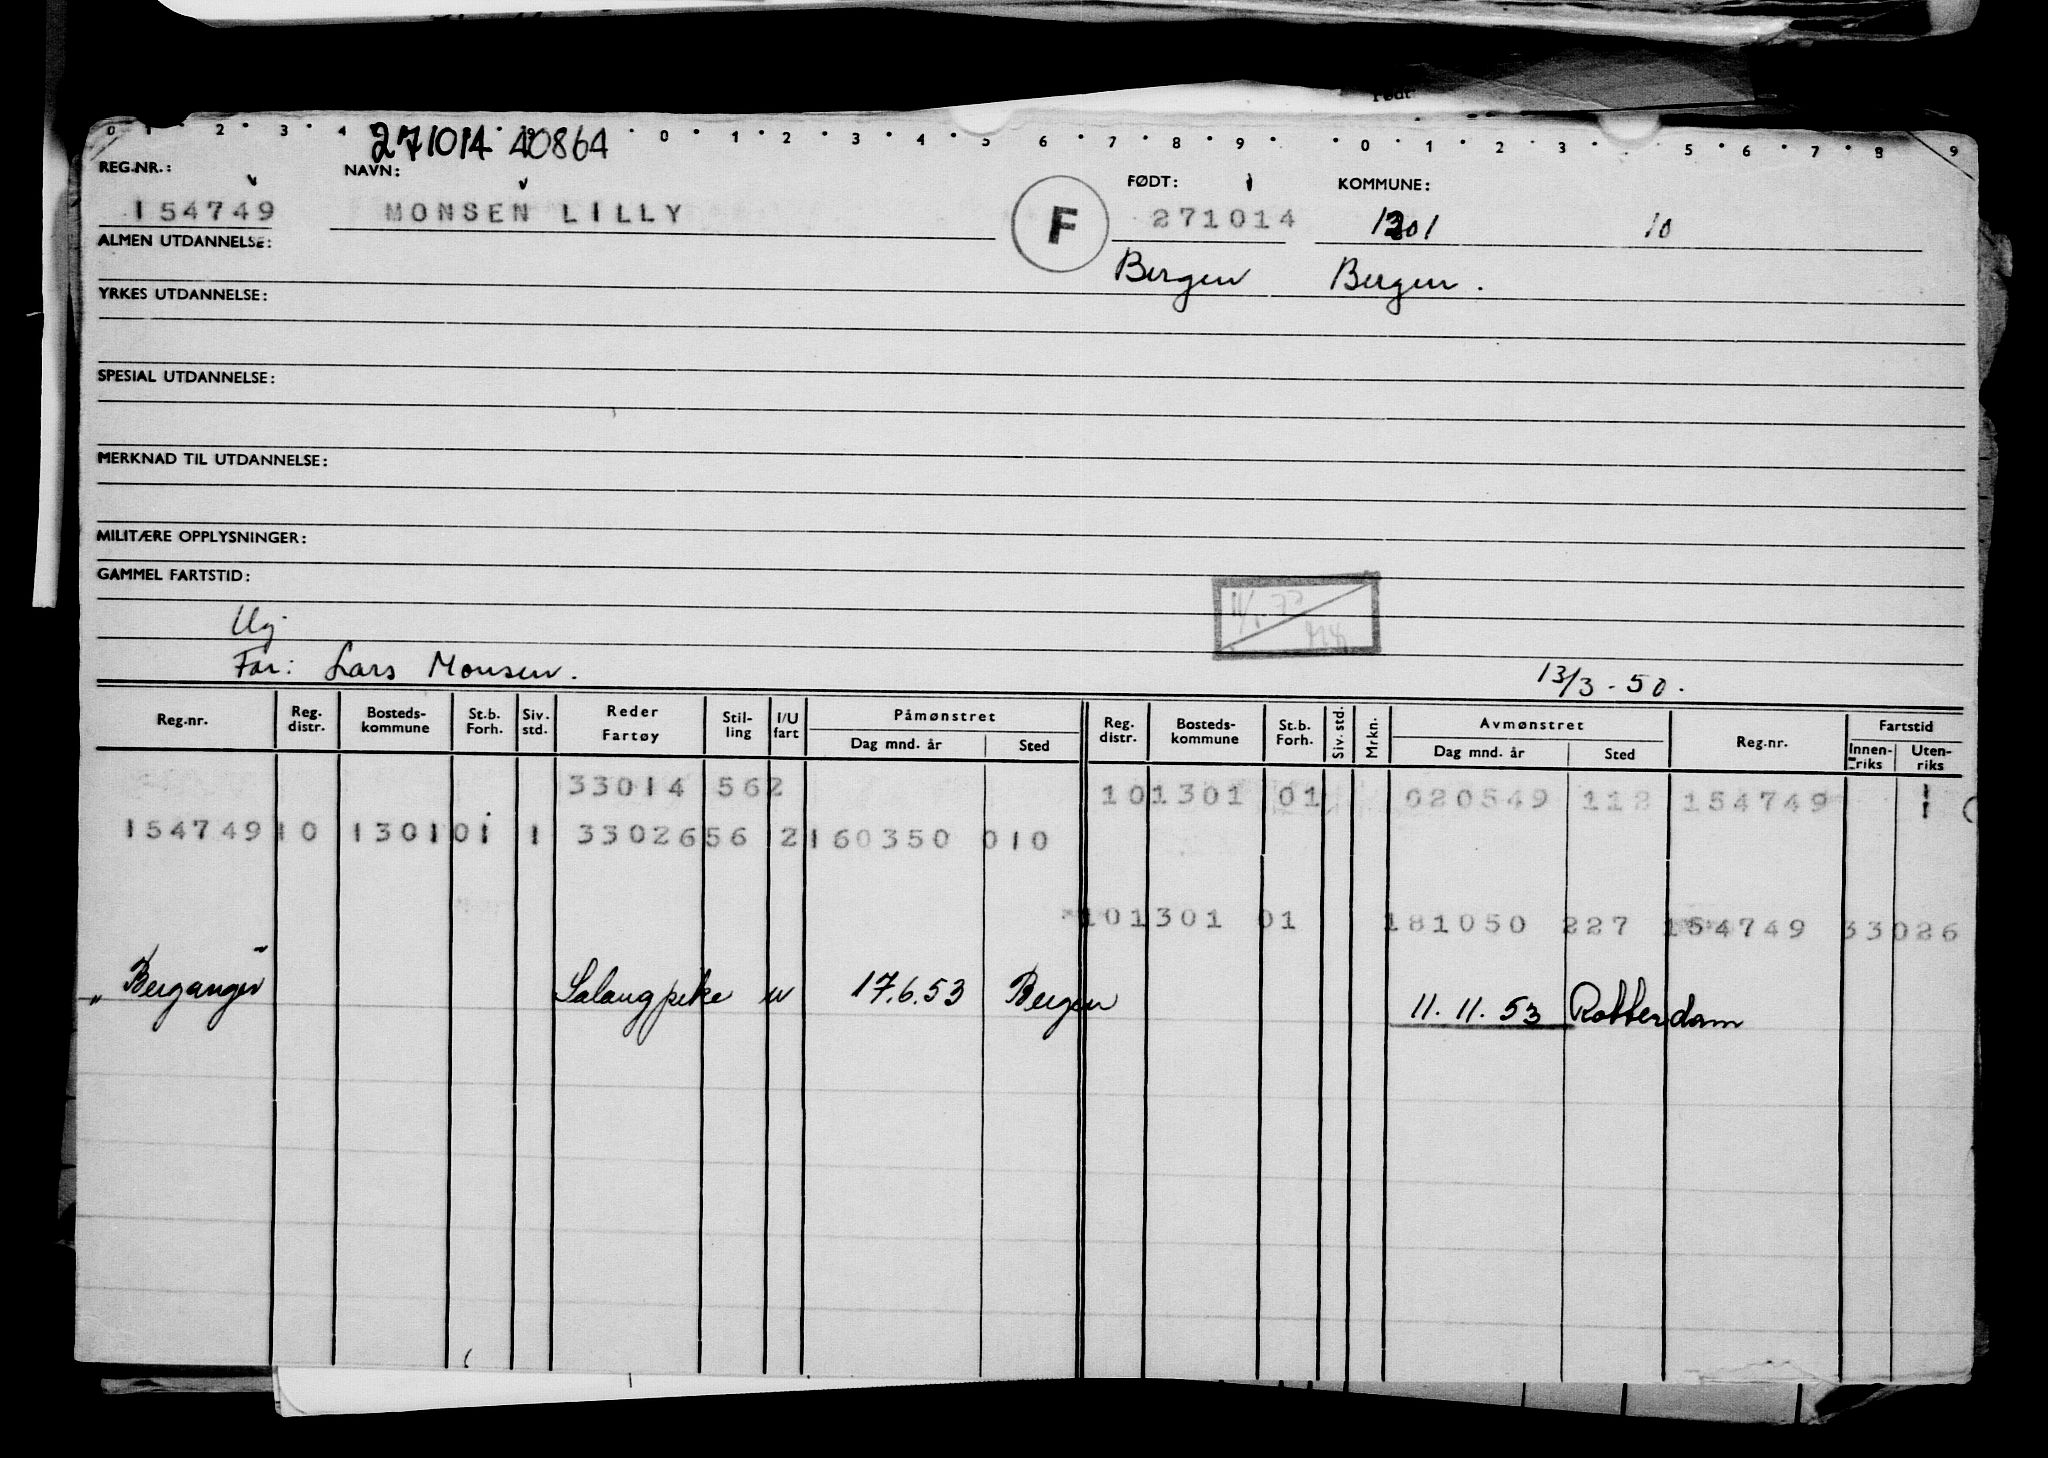 Født
0 1 2 3 4 0 1 2 3 4 5 6 7 8 9 0 1 2 3 5 6 7 8 9
271014 40864
REG.NR.: NAVN: FØDT: KOMMUNE:
154749 MONSEN LILLY F 271014 1301 10
ALMEN UTDANNELSE:
Bergen Bergen.
YRKES UTDANNELSE:
SPESIAL UTDANNELSE:
MERKNAD TIL UTDANNELSE:
MILITÆRE OPPLYSNINGER:
GAMMEL FARTSTID:
Ug
Far: Lars Monsen. 13/3 - 50.
Reg.nr. Reg. distr. Bosteds-kommune St.b. Forh. Siv. std. Reder Fartøy Stil-ling I/U fart Påmønstret Dag mnd. år Sted Reg. distr. Bosteds-kommune St.b. Forh. Siv. std. Mrkn. Avmønstret Dag mnd. år Sted Reg.nr. Fartstid Innen-riks Uten-riks
33014 562 101301 01 020549 112 154749 1
154749 10 1301 01 1 33026 56 2 160350 010 1
101301 01 181050 227 154749 33026
"Berganger" Salongpike u 17.6.53 Bergen 11.11.53 Rotterdam